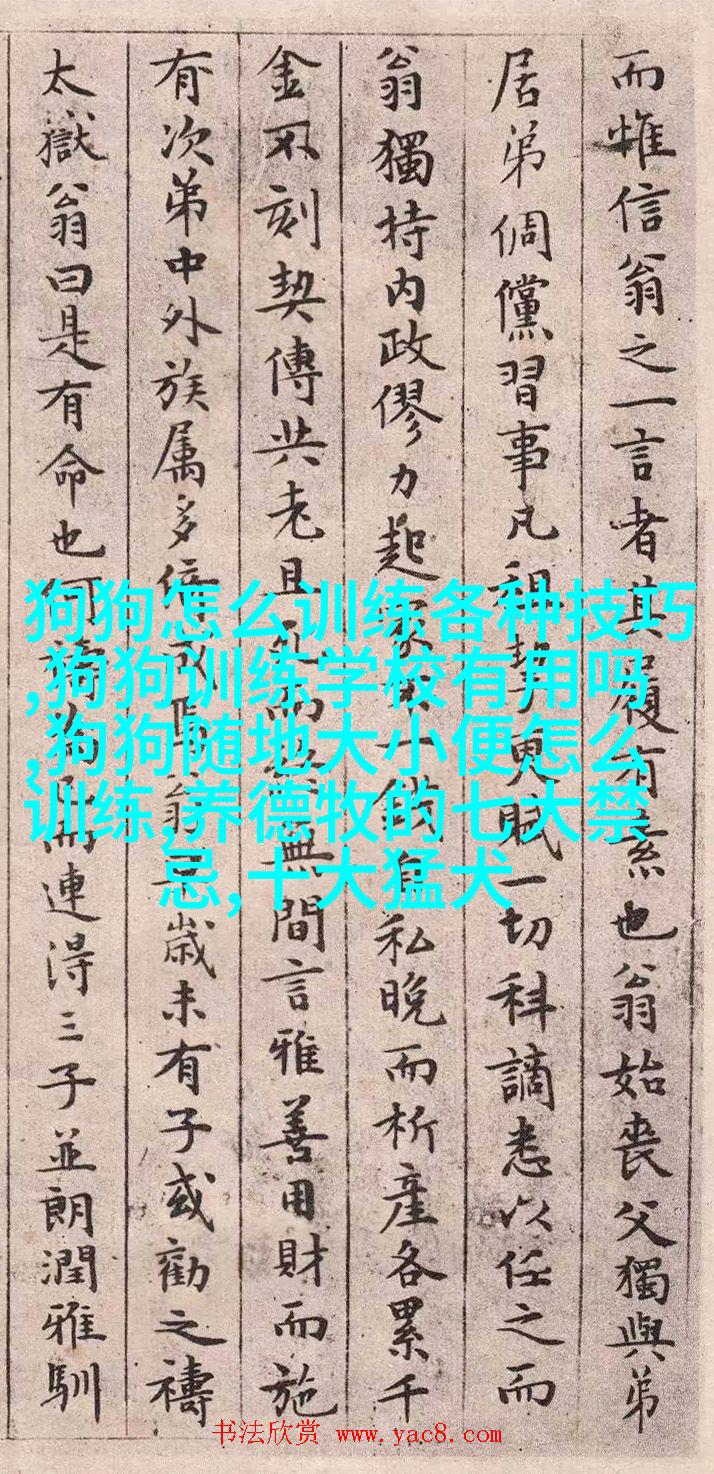 而惟信翁之一言者其履有素也翁始喪父獨與弟
居弟倜儻習事凡租挈更賦一切科讁悉以任之而
翁獨持内政僇力起家一錢自私晚而析產各累千
金不刻契傳共老且死而無間言雅善用財而施
有次弟中外族属多倍翁歲未有子或勸之禱
太嶽翁曰是有命也何禱而連淂三子並朗潤雅馴
狗狗怎么训练各种技巧
,狗狗训练学校有用吗
,狗狗随地大小便怎么
训练,养德牧的七大禁
忌,十大猛犬
书法欣赏 www.yac8.com